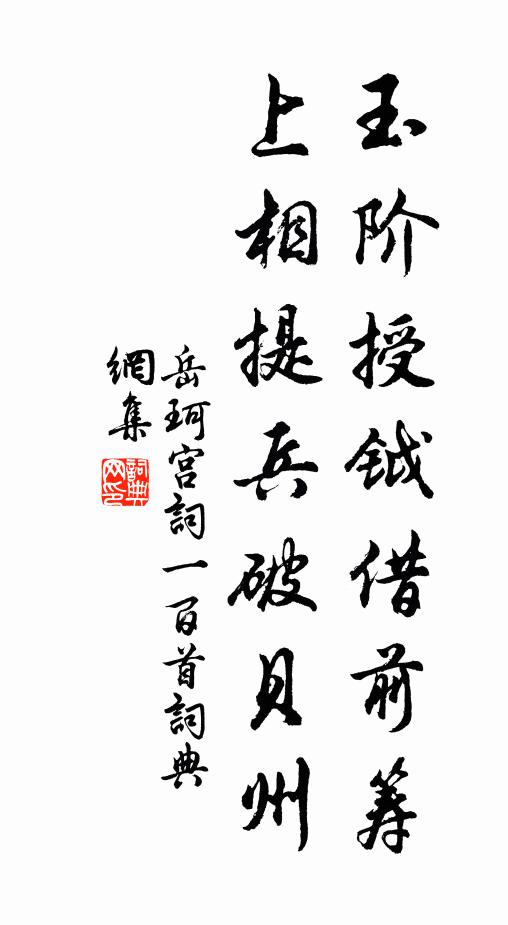 玉阶授钺借前筹
上相提兵破贝州
岳珂宫詞一百首詞典
網集
詞典
网印